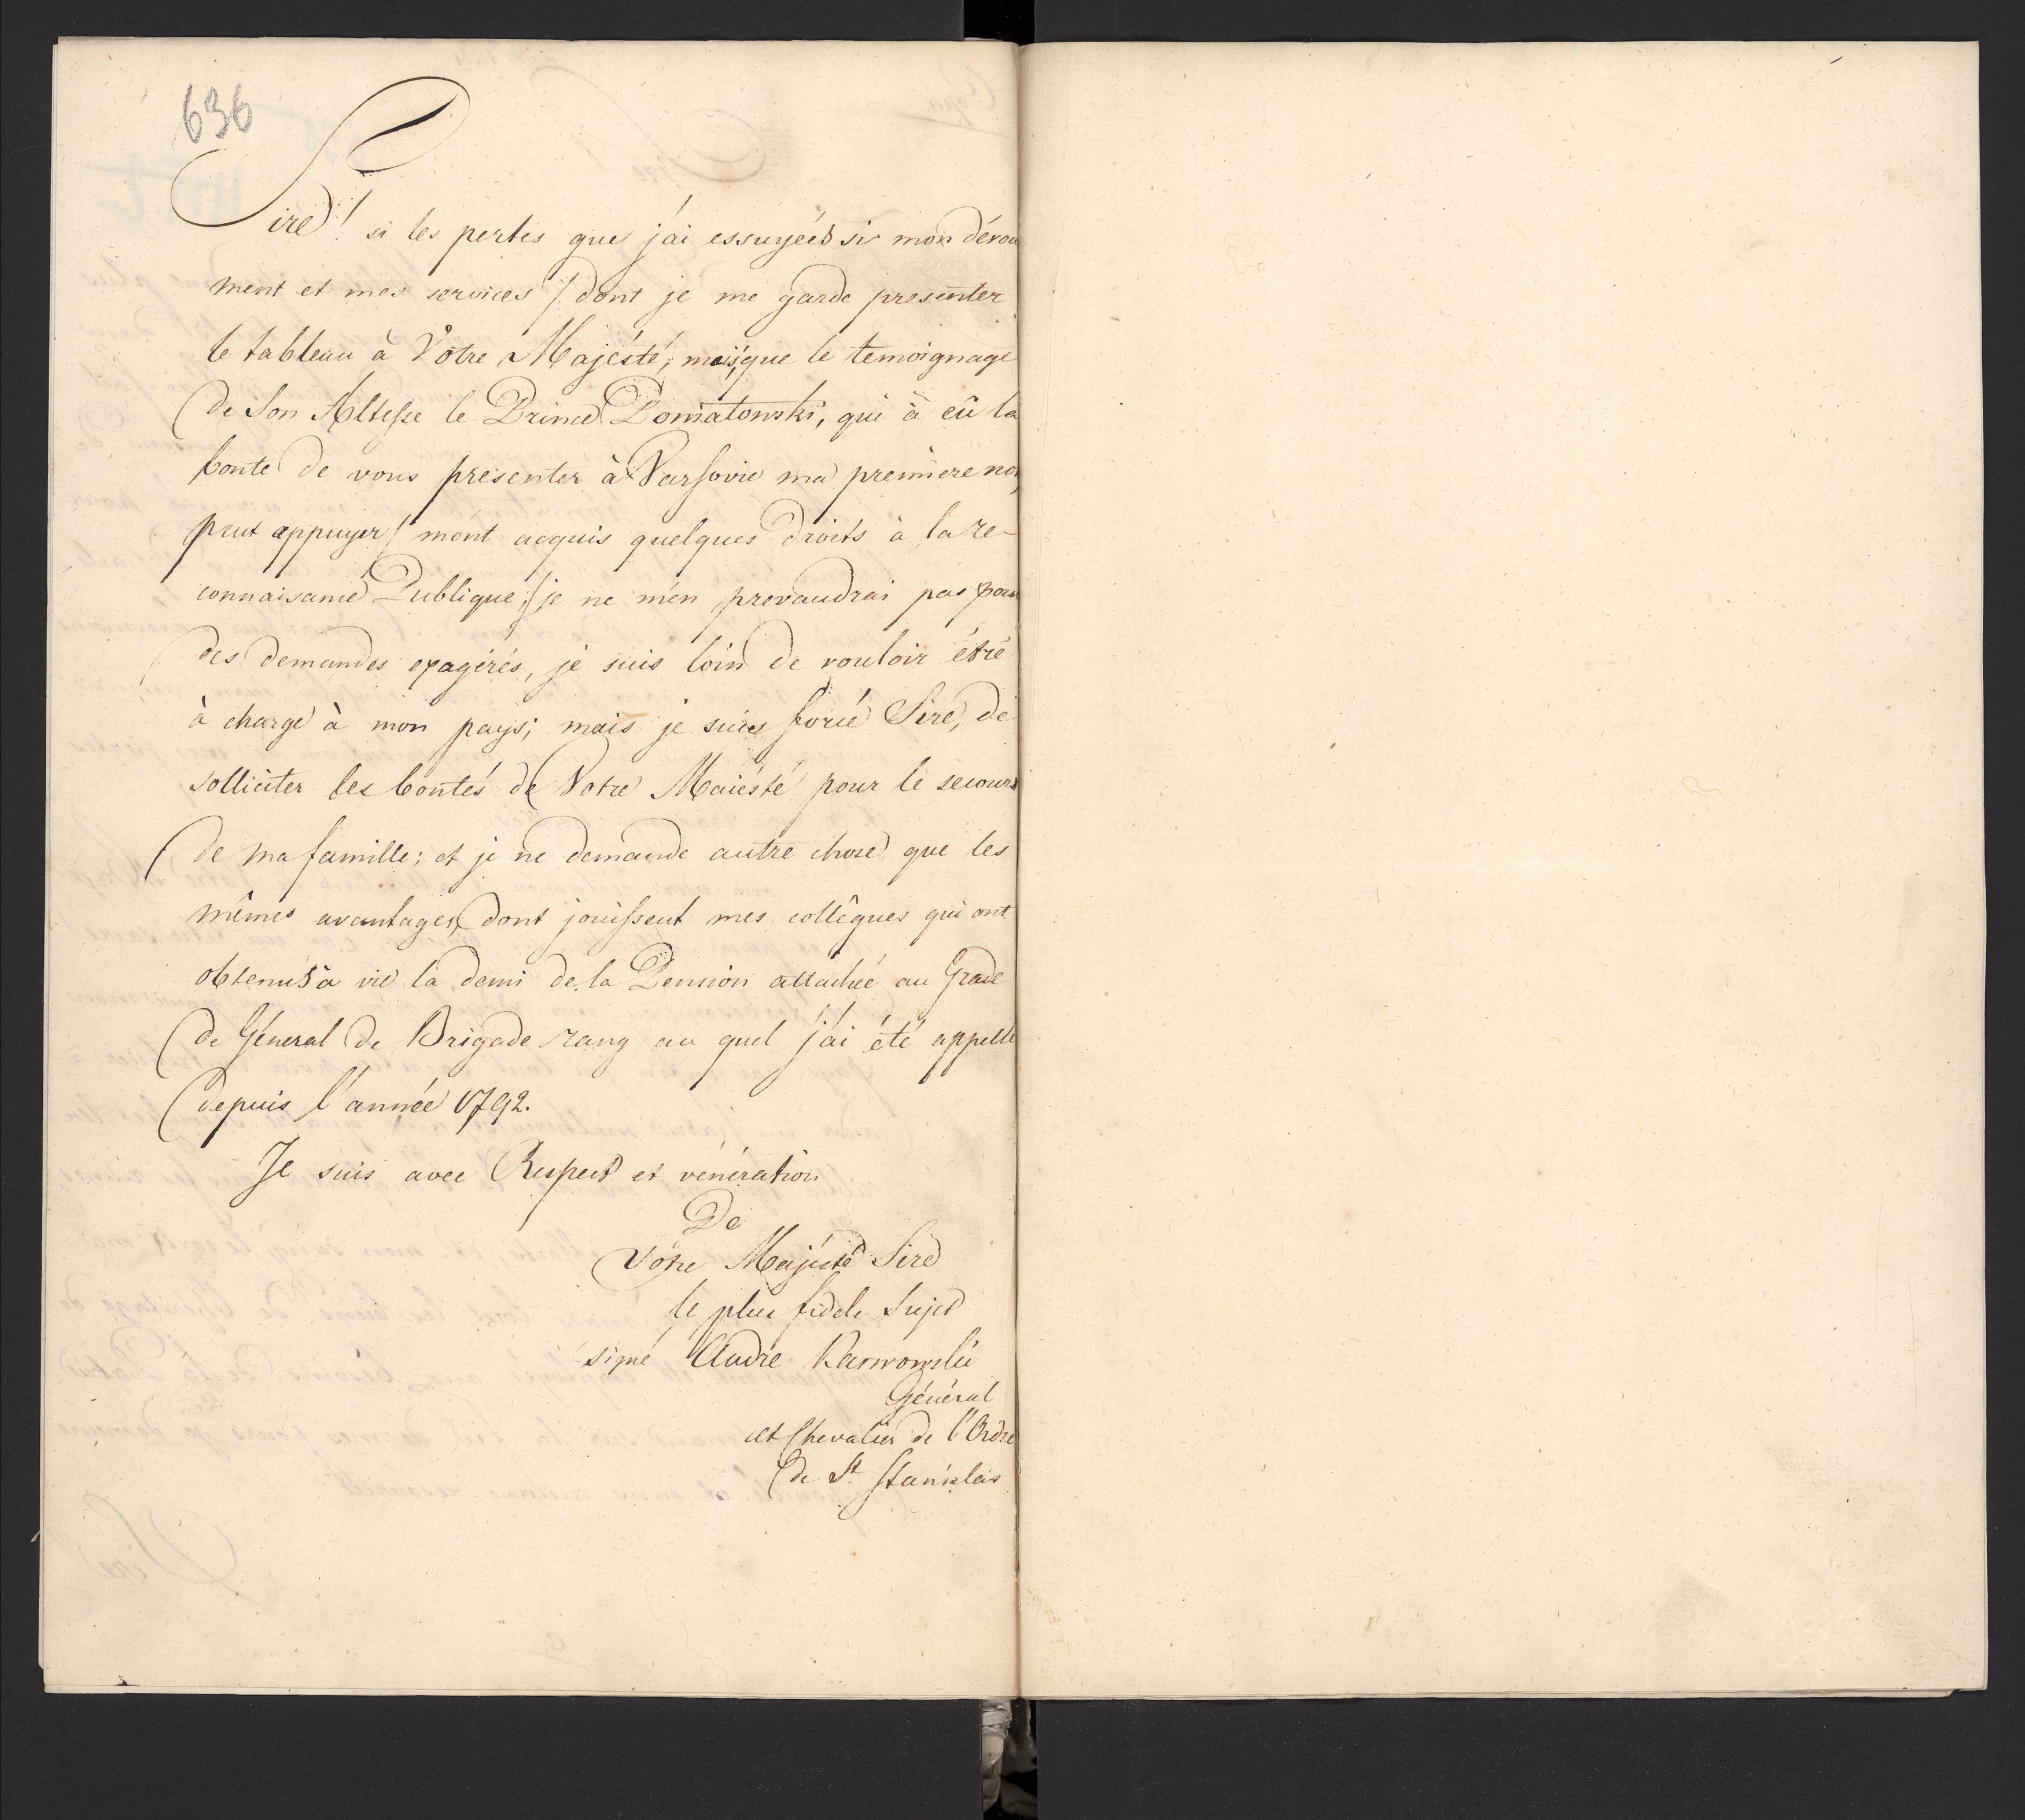 636
Sire! si les pertes que j'ai essuyées si mon dévou
ment et mes services /: dont je me garde presenter
le tableau à Votre Majésté, mais que le temoignage
de Son Altesse le Prince Poniatowski, qui à eû la
bonte de vous presenter à Varsovie ma premiere no
peut appuyer/ m'ont acquis quelques droits à la re-
connaisance Publique; je ne m'en prevaudrai pas pour
des demandes exagérés, je suis loin de vouloir être
à charge à mon pays; mais je suis forcé Sire, de
solliciter les bontés de Votre Maiésté pour le secours
de ma famille; et je ne demande autre chose que les
mêmes avantages, dont jouissent mes collêgues qui ont
obtenus à vie la demi de la Pension attachée au Grade
de Géneral de Brigade rang au quel j'ai été appellé
depuis l'année 1792.
Je suis avec Respect et vénération
De
Votre Majésté Sire
le plus fidele Sujet
signé André Karwowski
Général
et Chevalier de l'Ordre
de St. Stanislas